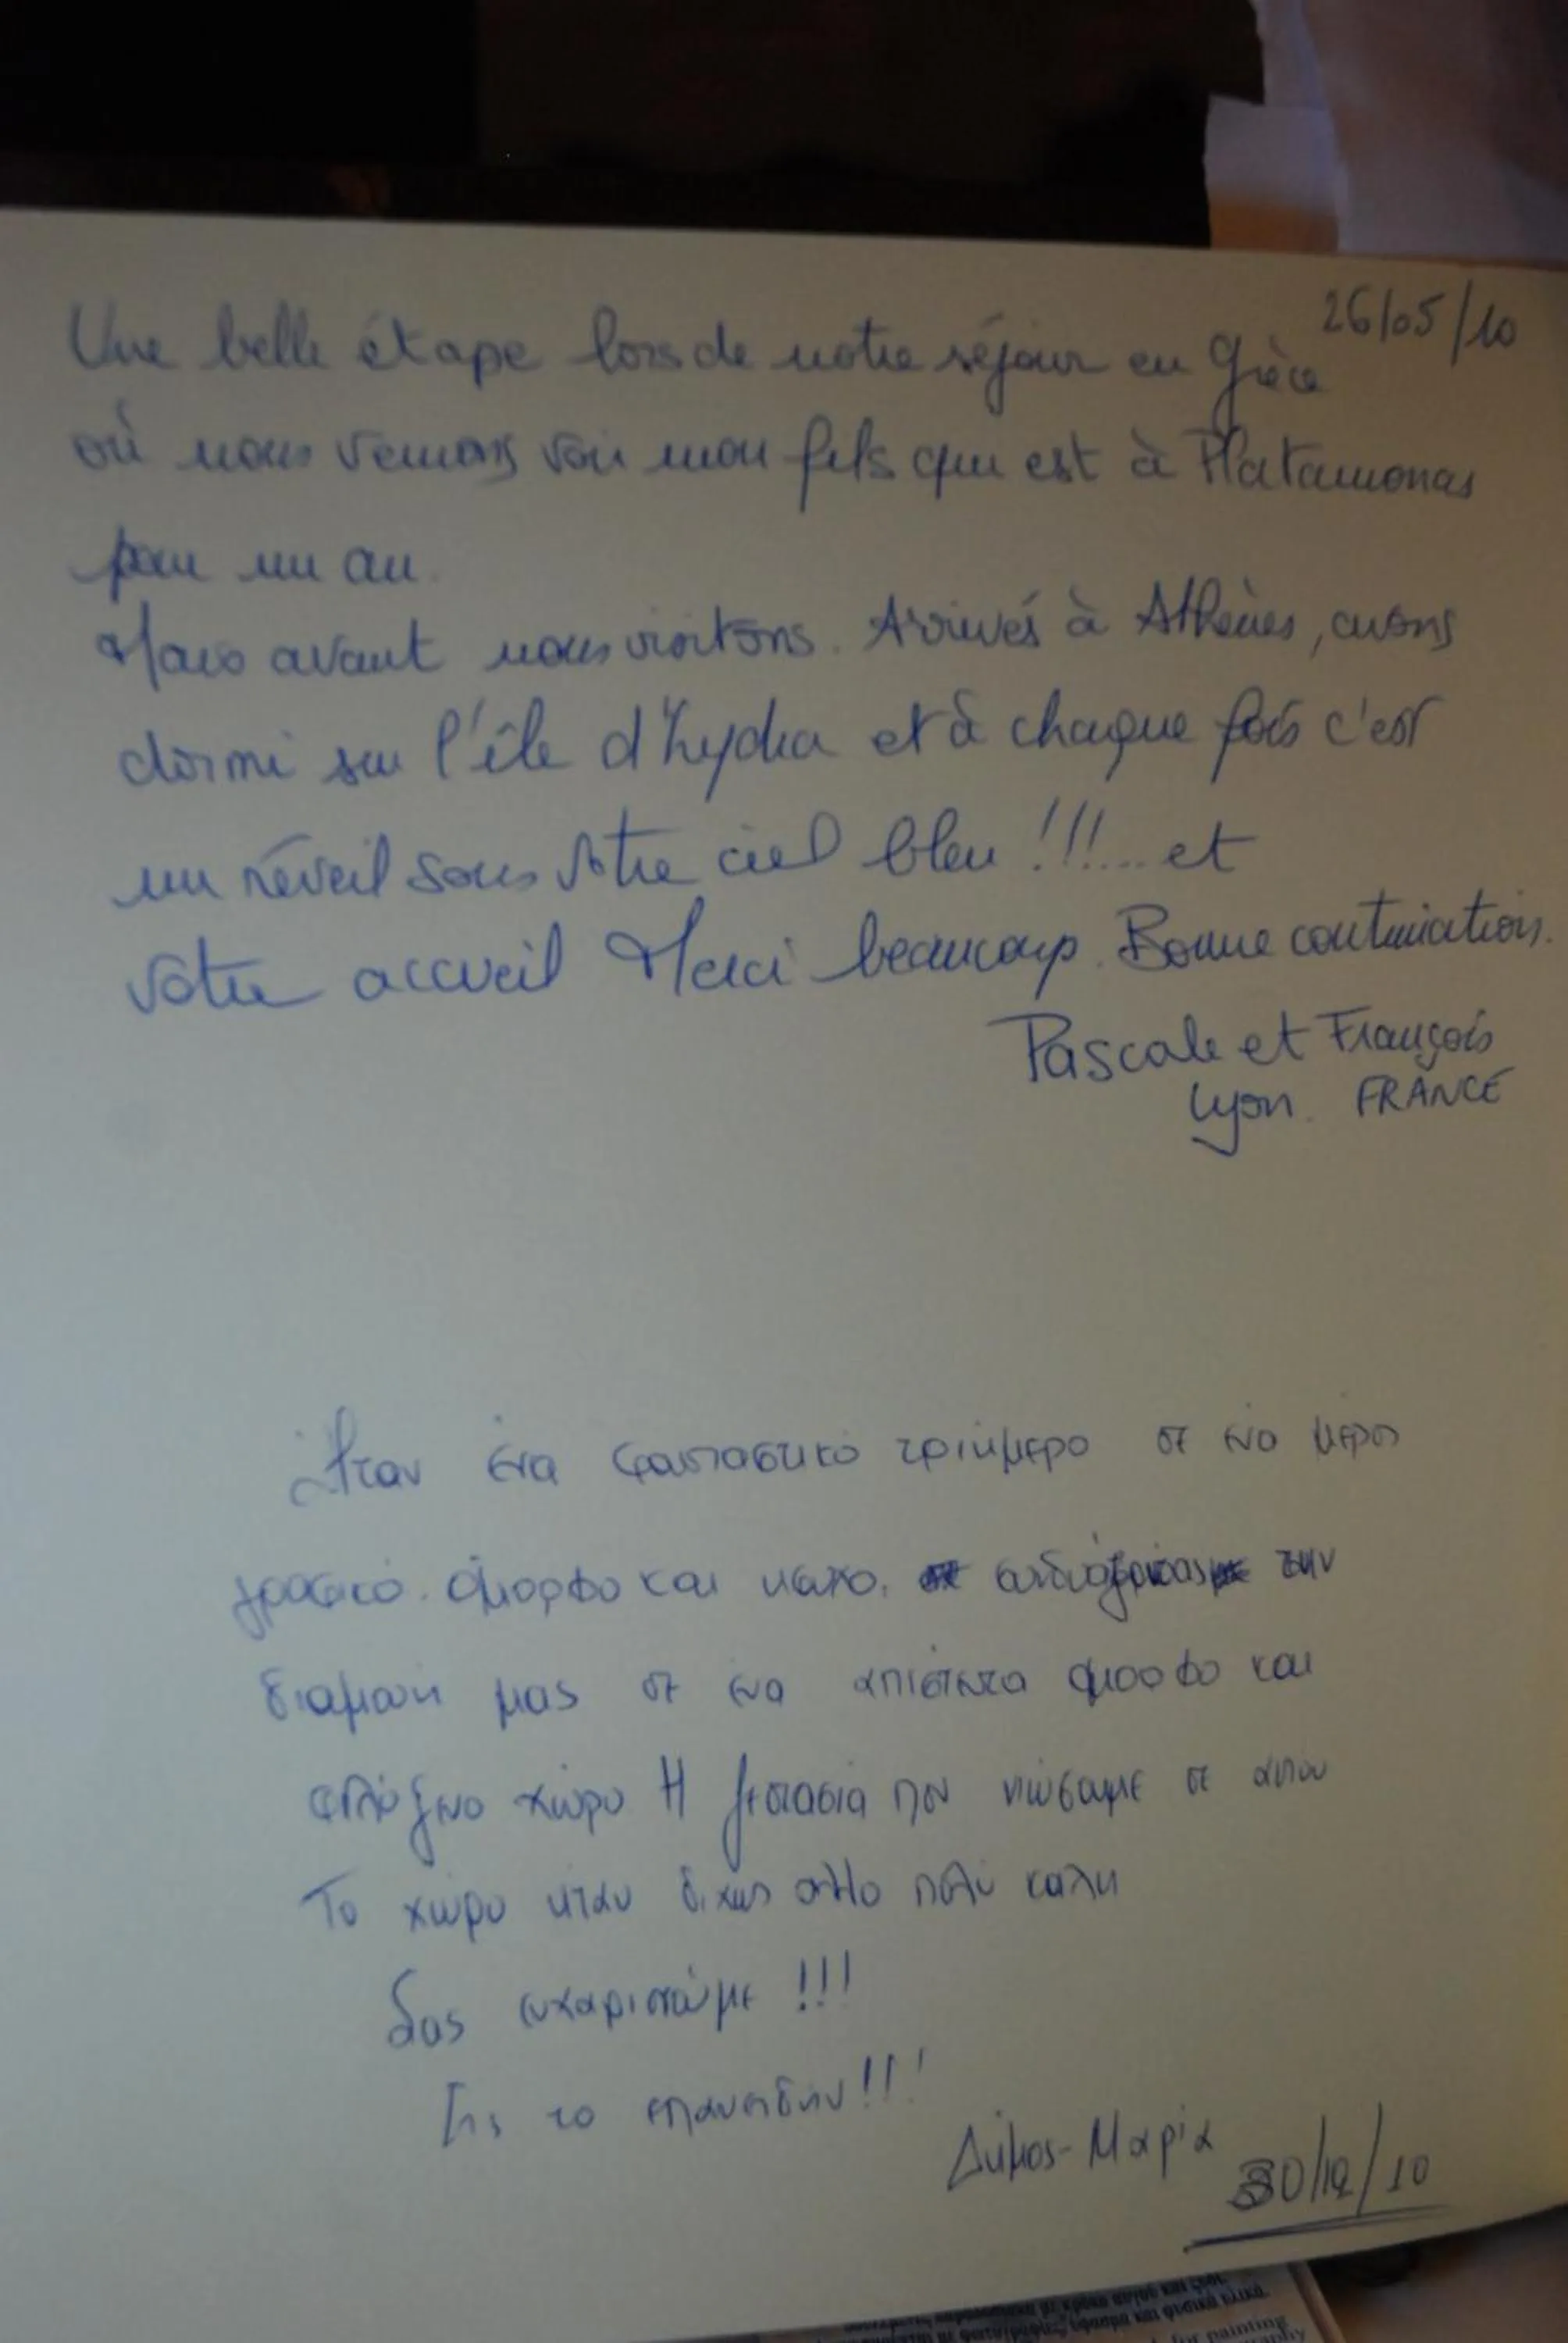 26/05/10
Une belle étape lors de notre séjour en Grèce
où nous venons voir mon fils qui est à Platamonas
pour un an.
Mais avant nous visitons. Arrivés à Athènes, avons
dormi sur l'île d'hydra et à chaque fois c'est
un réveil sous votre ciel bleu !!!... et
votre accueil Merci beaucoup. Bonne continuation.
Pascale et François
Lyon. FRANCE
Ήταν ένα φανταστικό τριήμερο σε ένα μέρος
γραφικό. όμορφο και την
διαμονή μας σε ένα απίστευτα όμορφο και
φιλόξενο χώρο Η ζεστασιά που νιώσαμε σε αυτόν
το χώρο ήταν δίχως άλλο πολύ καλή
Σας ευχαριστούμε !!!
Εις το επανειδήν!!!
Δήμος-Μαρία
30/12/10